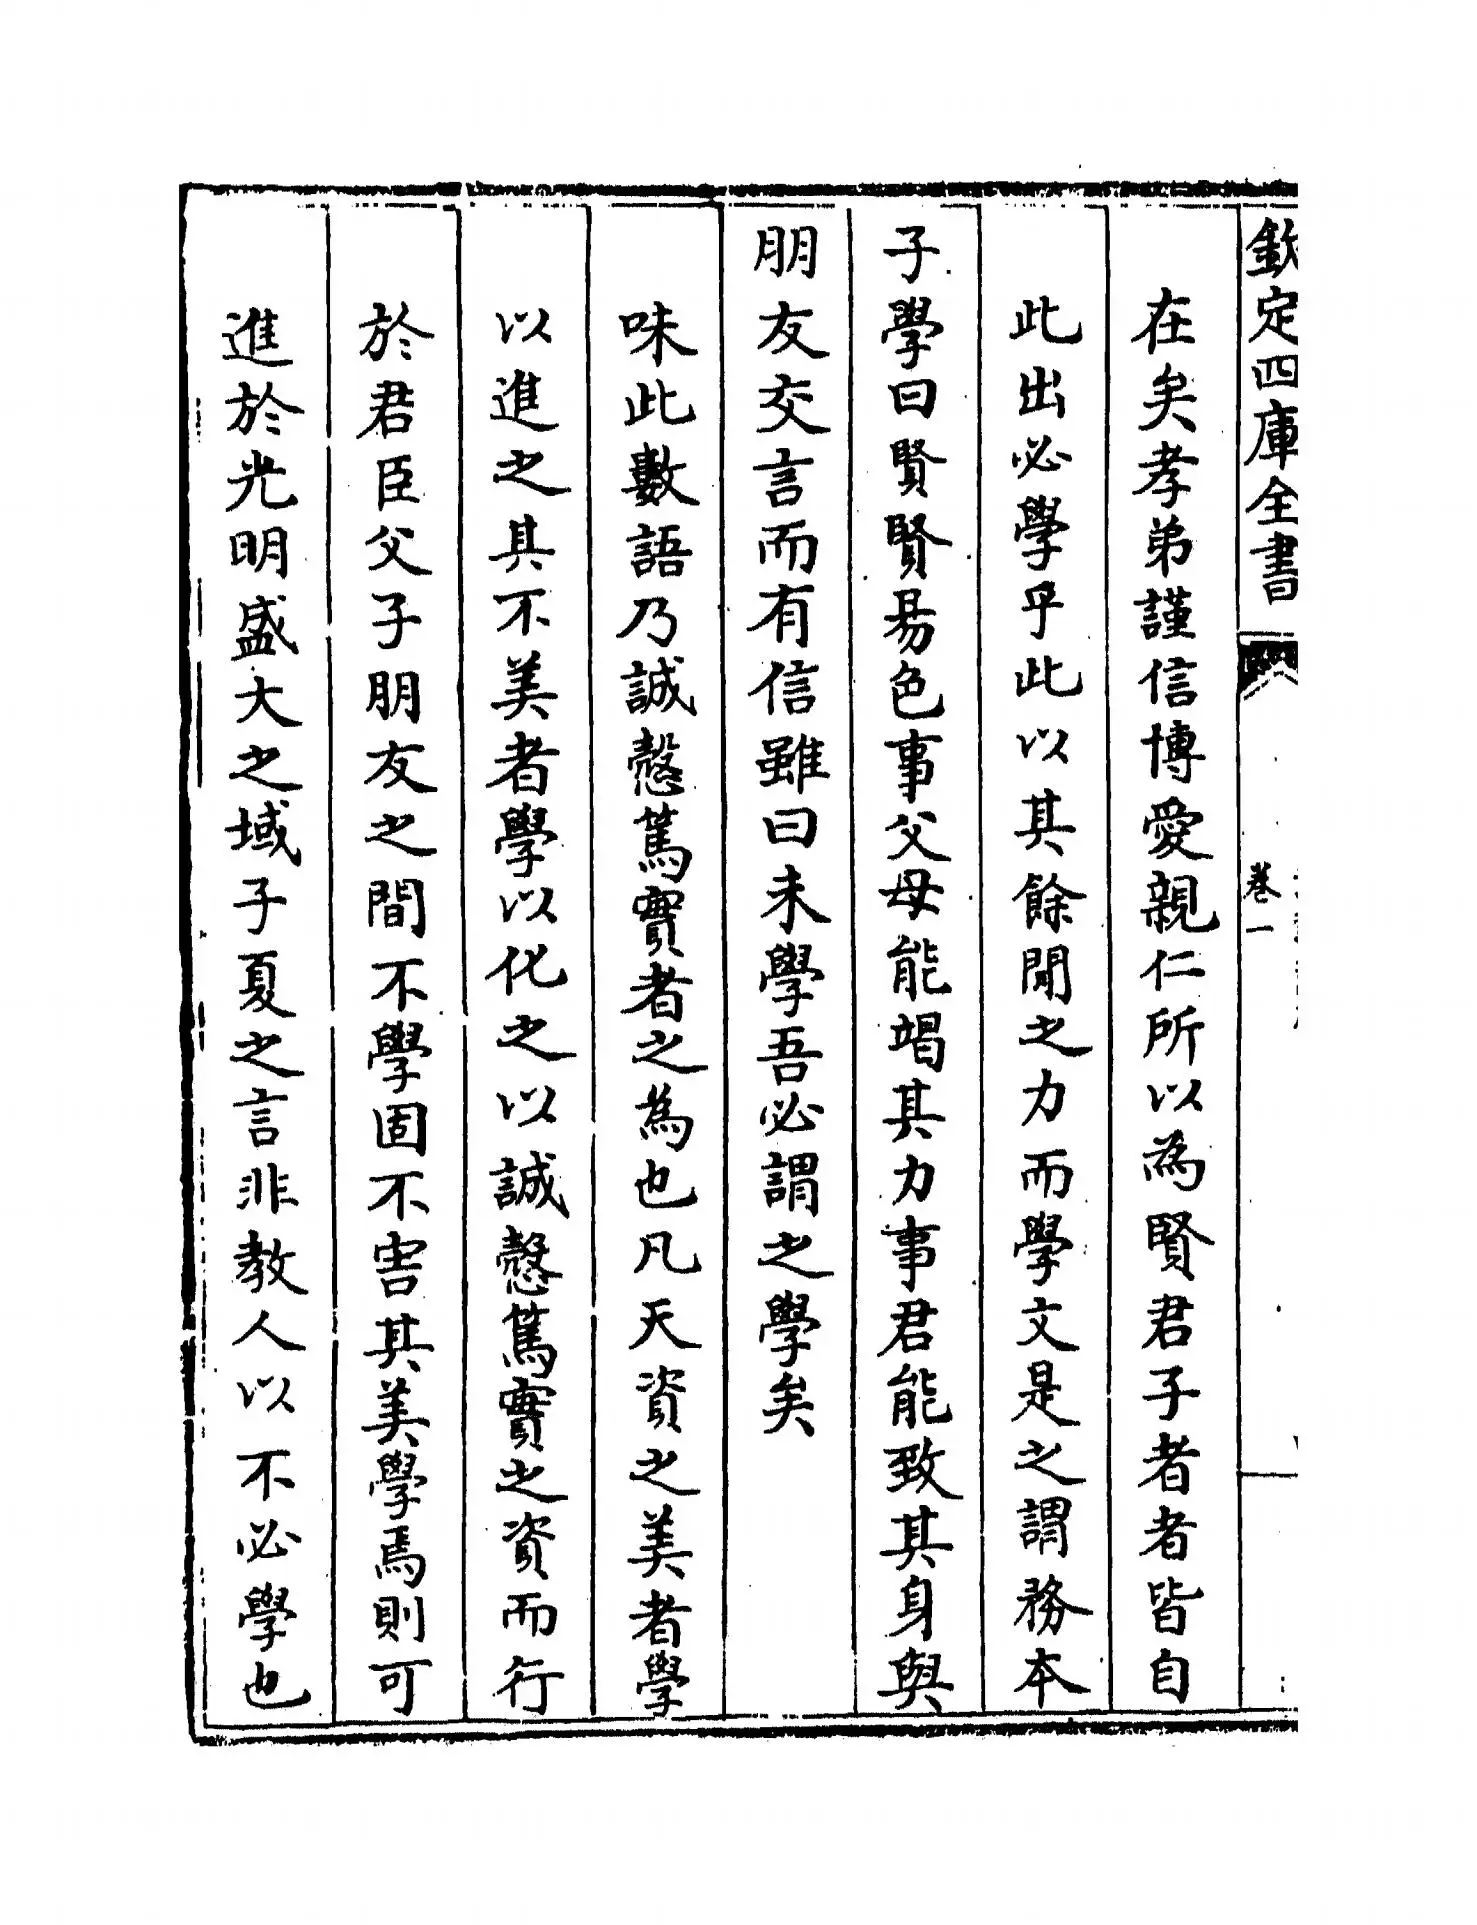 欽定四庫全書
卷一
在矣孝弟謹信博愛親仁所以為賢君子者者皆自
此出必學乎此以其餘閒之力而學文是之謂務本
子學曰賢賢易色事父母能竭其力事君能致其身與
朋友交言而有信雖曰未學吾必謂之學矣
味此數語乃誠慤篤實者之為也凡天資之美者學
以進之其不美者學以化之以誠慤篤實之資而行
於君臣父子朋友之間不學固不害其美學焉則可
進於光明盛大之域子夏之言非教人以不必學也